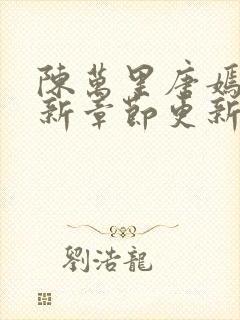 陳萬里唐嫣
新章節更新
劉浩龍